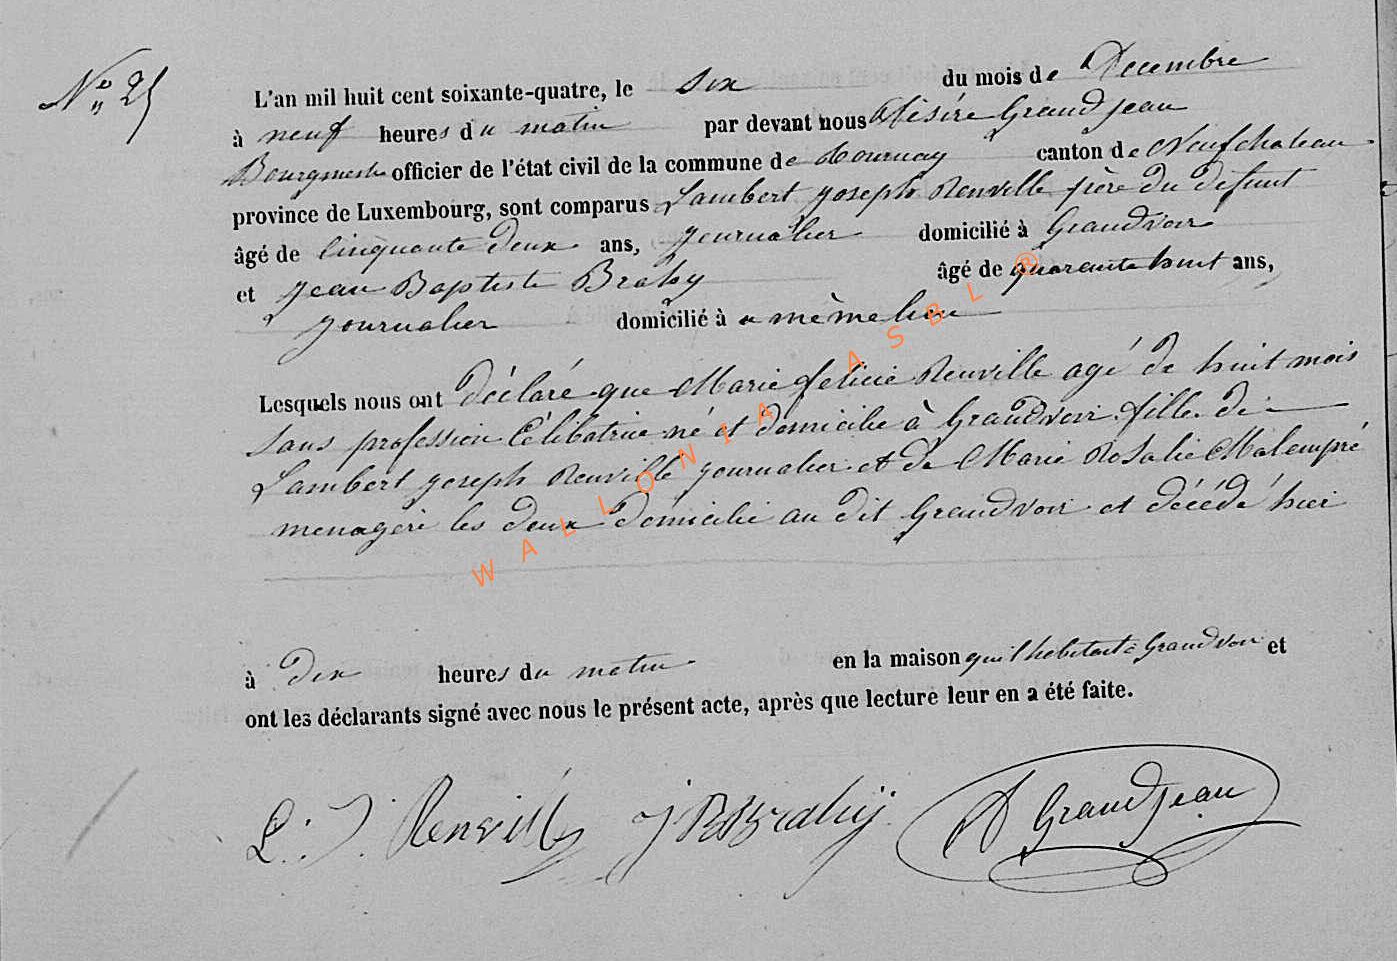 N° 25
L'an mil huit cent soixante-quatre, le six du mois de Decembre
à neuf heures du matin par devant nous Désiré Grandjean
Bourgmestre officier de l'état civil de la commune de Tournay canton de Neufchateau
province de Luxembourg, sont comparus Lambert Joseph Renville père du défunt
âgé de cinquante deux ans, journalier domicilié à Grandvoir
et Jean Baptiste Brahy âgé de quarante huit ans,
journalier domicilié à u même lieu
Lesquels nous ont déclaré que Marie felicie Renville agé de huit mois
sans profession Célibatrice né et domicilie à Grandvoir fille de
Lambert joseph Renville journalier et de Marie Rosalie Malempré
menagère les deux domicilie au dit Grandvoir et décédé hier
à dix heures du matin en la maison qu'il habitait à Grandvoir et
ont les déclarants signé avec nous le présent acte, après que lecture leur en a été faite.
L. J. Renville JBBrahy D Grandjean
WALLONIA ASBL ®